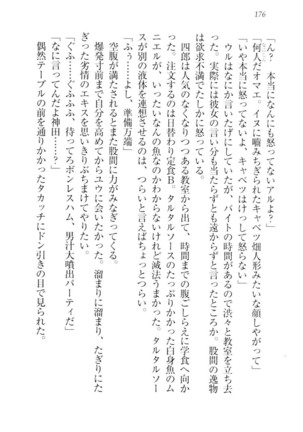 176
「ん？　本当になにも怒ってないアルよ？」
「何人だオマエ。イヌに噛みちぎられたキャベツ畑人形みたいな顔しやがって」
「いや本当に怒ってないよ、キャベツはけっして怒らない」
ウルはなにか言いたげにしていたが、バイトの時間があるので渋々と教室を立ち去
った。実際のところ彼女の言い分も当たらずとも遠からずと言ったところか。股間の逸物
は欲求不満でたしかに怒っている。
四郎は人気のなくなりつつある教室から出て、時間までの腹ごしらえに学食へ向か
った。注文するのは日替わり定食Ｂ。タルタルソースのたっぷりかかった白身魚のム
ニエルが、いったいなんの魚なのかわからないけれど滅法うまかった。タルタルソー
スが別の液体を連想させるのは、つらいと言えばちょっとつらい。
「ふぅ……よし、準備万端」
空腹が満たされるとまた股間に力がみなぎってくる。
爆発寸前まで自分を高めてからユウに会いたかった。溜まりに溜まり、たぎりにた
ぎった劣情のエキスを思いきりぶちまけてやりたい。
「ぐふ……ぐふふふ、待ってろボンレスハム、男汁大噴出パーティだ」
「なに言ってんだ神田……？」
偶然テーブルの前を通りかかったタカッチにドン引きの目で見られた。